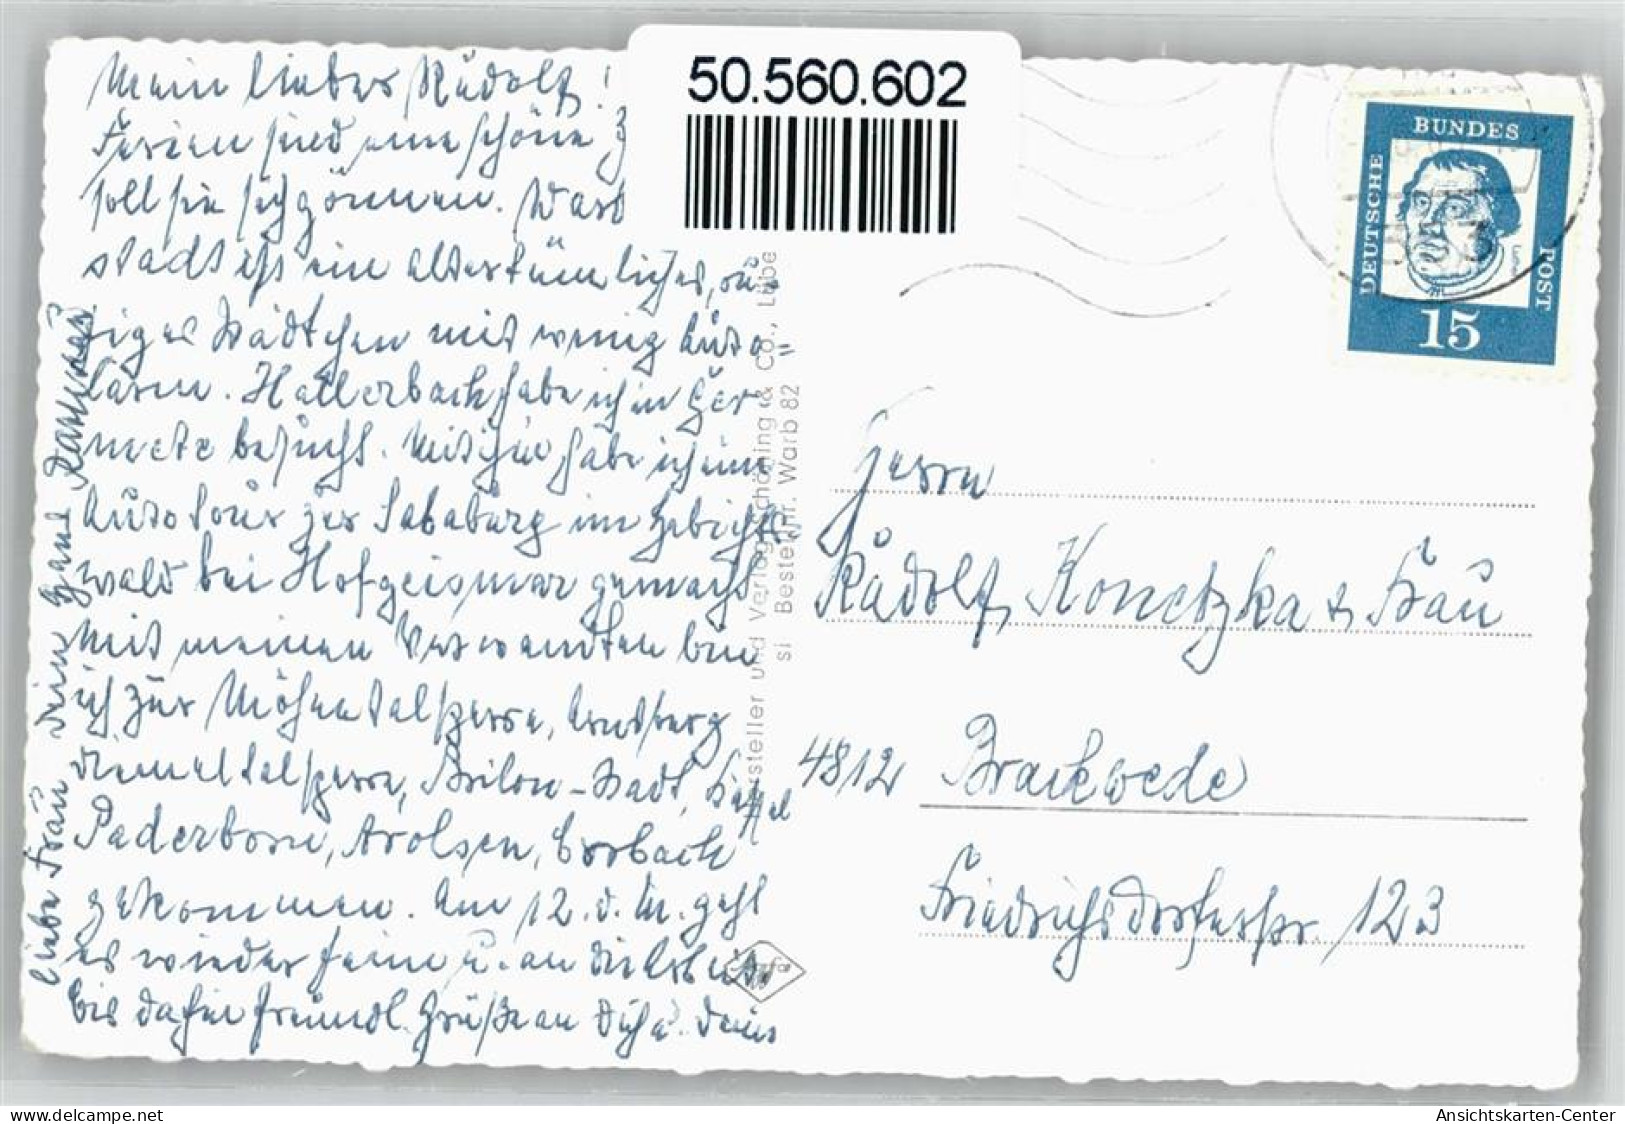 Mein lieber Rudolf!
Ferien sind eine schöne
soll sie sich gönnen. War
stadt ist ein altertümliches, ru=
higes Städtchen mit wenig Auto=
lärm. Hallerbach habe ich in Ger
mete besucht. Mit ihm habe ich eine
Autotour zur Sababurg im Habichts
wald bei Hofgeismar gemacht
Mit meinen Verwandten bin
ich zur Möhnetalsperre, Arnsberg
Diemeltalsperre, Brilon-Stadt, Kassel
Paderborn, Arolsen, Corbach
gekommen. Am 12. d. M. geht
es wieder heim u. an die Arbeit.
Bis dahin freundl. Grüße an Dich u. Deine
liebe Frau Dein Hans
50.560.602
Hersteller und Verlag Schöning & Co., Lübe
si Bestell-Nr. Warb 82
Agfa
DEUTSCHE BUNDES POST
15
Herrn
Rudolf Konetzka & Frau
4812 Brackwede
Friedrichsdorferstr. 123
delcampe.net
Ansichtskarten-Center